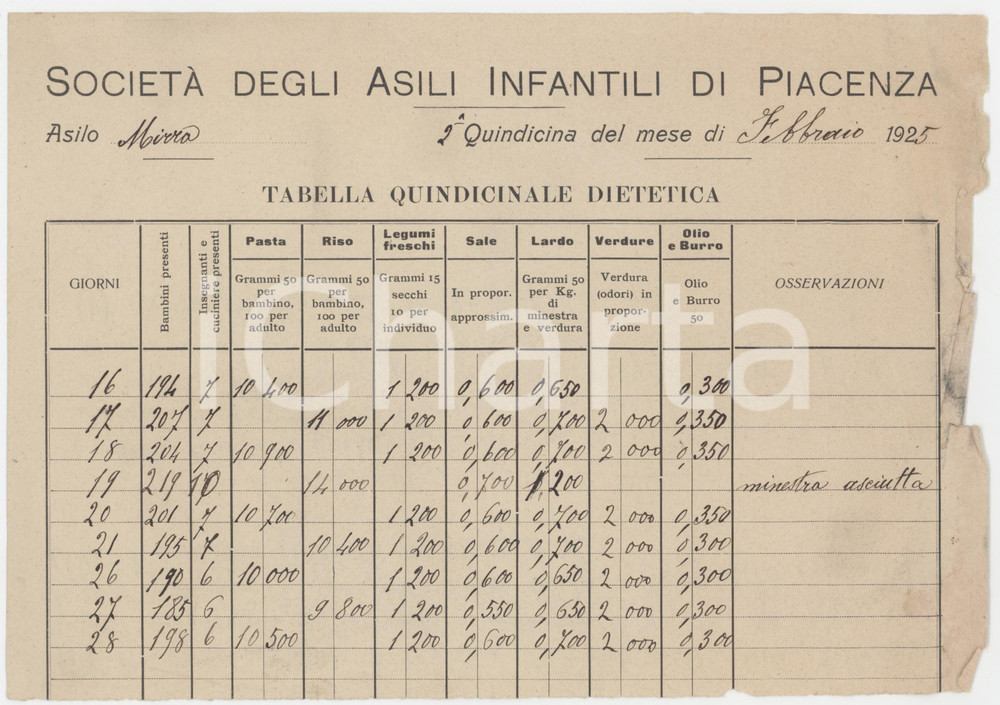 SOCIETÀ DEGLI ASILI INFANTILI DI PIACENZA
Asilo Mirra 2ª Quindicina del mese di Febbraio 1925
TABELLA QUINDICINALE DIETETICA
GIORNI Bambini presenti Insegnanti e cuciniere presenti Pasta Riso Legumi freschi Sale Lardo Verdure Olio e Burro OSSERVAZIONI
Grammi 50 per bambino, 100 per adulto Grammi 50 per bambino, 100 per adulto Grammi 15 secchi 10 per individuo In propor. approssim. Grammi 50 per Kg. di minestra e verdura Verdura (odori) in proporzione Olio e Burro 50
16 194 7 10 400 1 200 0,600 0,650 0,300
17 207 7 11 000 1 200 0,600 0,700 2 000 0,350
18 204 7 10 900 1 200 0,600 0,700 2 000 0,350
19 219 10 14 000 0,700 1,200 minestra asciutta
20 201 7 10 700 1 200 0,600 0,700 2 000 0,350
21 195 7 10 400 1 200 0,600 0,700 2 000 0,300
26 190 6 10 000 1 200 0,600 0,650 2 000 0,300
27 185 6 9 800 1 200 0,550 0,650 2 000 0,300
28 198 6 10 500 1 200 0,600 0,700 2 000 0,300
iCharta